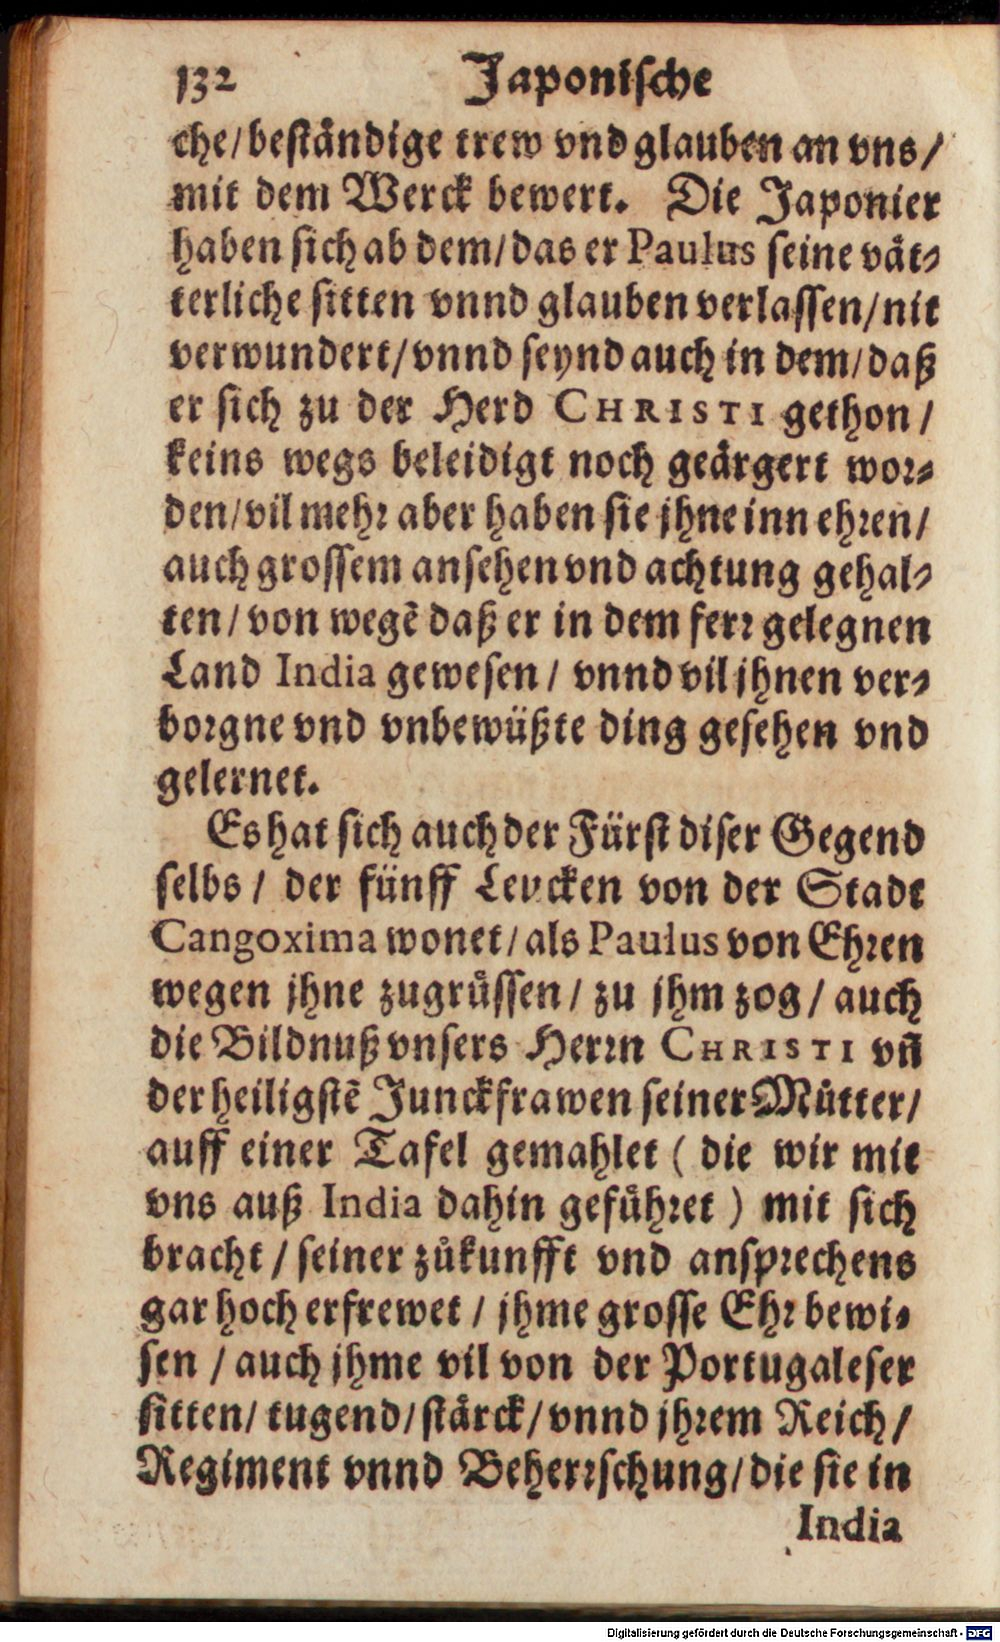 132 Japonische
che/ beståndige trew vnd glauben an vns/
mit dem Werck bewert. Die Japonier
haben sich ab dem/ das er Paulus seine våt-
terliche sitten vnnd glauben verlassen/ nit
verwundert/ vnnd seynd auch in dem/ daß
er sich zu der Herd CHRISTI gethon/
keins wegs beleidigt noch geårgert wor-
den/ vil mehr aber haben sie jhne inn ehren/
auch grossem ansehen vnd achtung gehal-
ten/ von wegẽ daß er in dem ferr gelegnen
Land India gewesen/ vnnd vil jhnen ver-
borgne vnd vnbewüßte ding gesehen vnd
gelernet.
Es hat sich auch der Fürst diser Gegend
selbs/ der fünff Leucken von der Stadt
Cangoxima wonet/ als Paulus von Ehren
wegen jhne zugrůssen/ zu jhm zog/ auch
die Bildnuß vnsers Herrn CHRISTI vñ
der heiligstẽ Junckfrawen seiner Můtter/
auff einer Tafel gemahlet (die wir mit
vns auß India dahin gefůhret) mit sich
bracht/ seiner zůkunfft vnd ansprechens
gar hoch erfrewet/ jhme grosse Ehr bewi-
sen/ auch jhme vil von der Portugaleser
sitten/ tugend/ stårck/ vnnd jhrem Reich/
Regiment vnnd Beherrschung/ die sie in
India
Digitalisierung gefördert durch die Deutsche Forschungsgemeinschaft - DFG